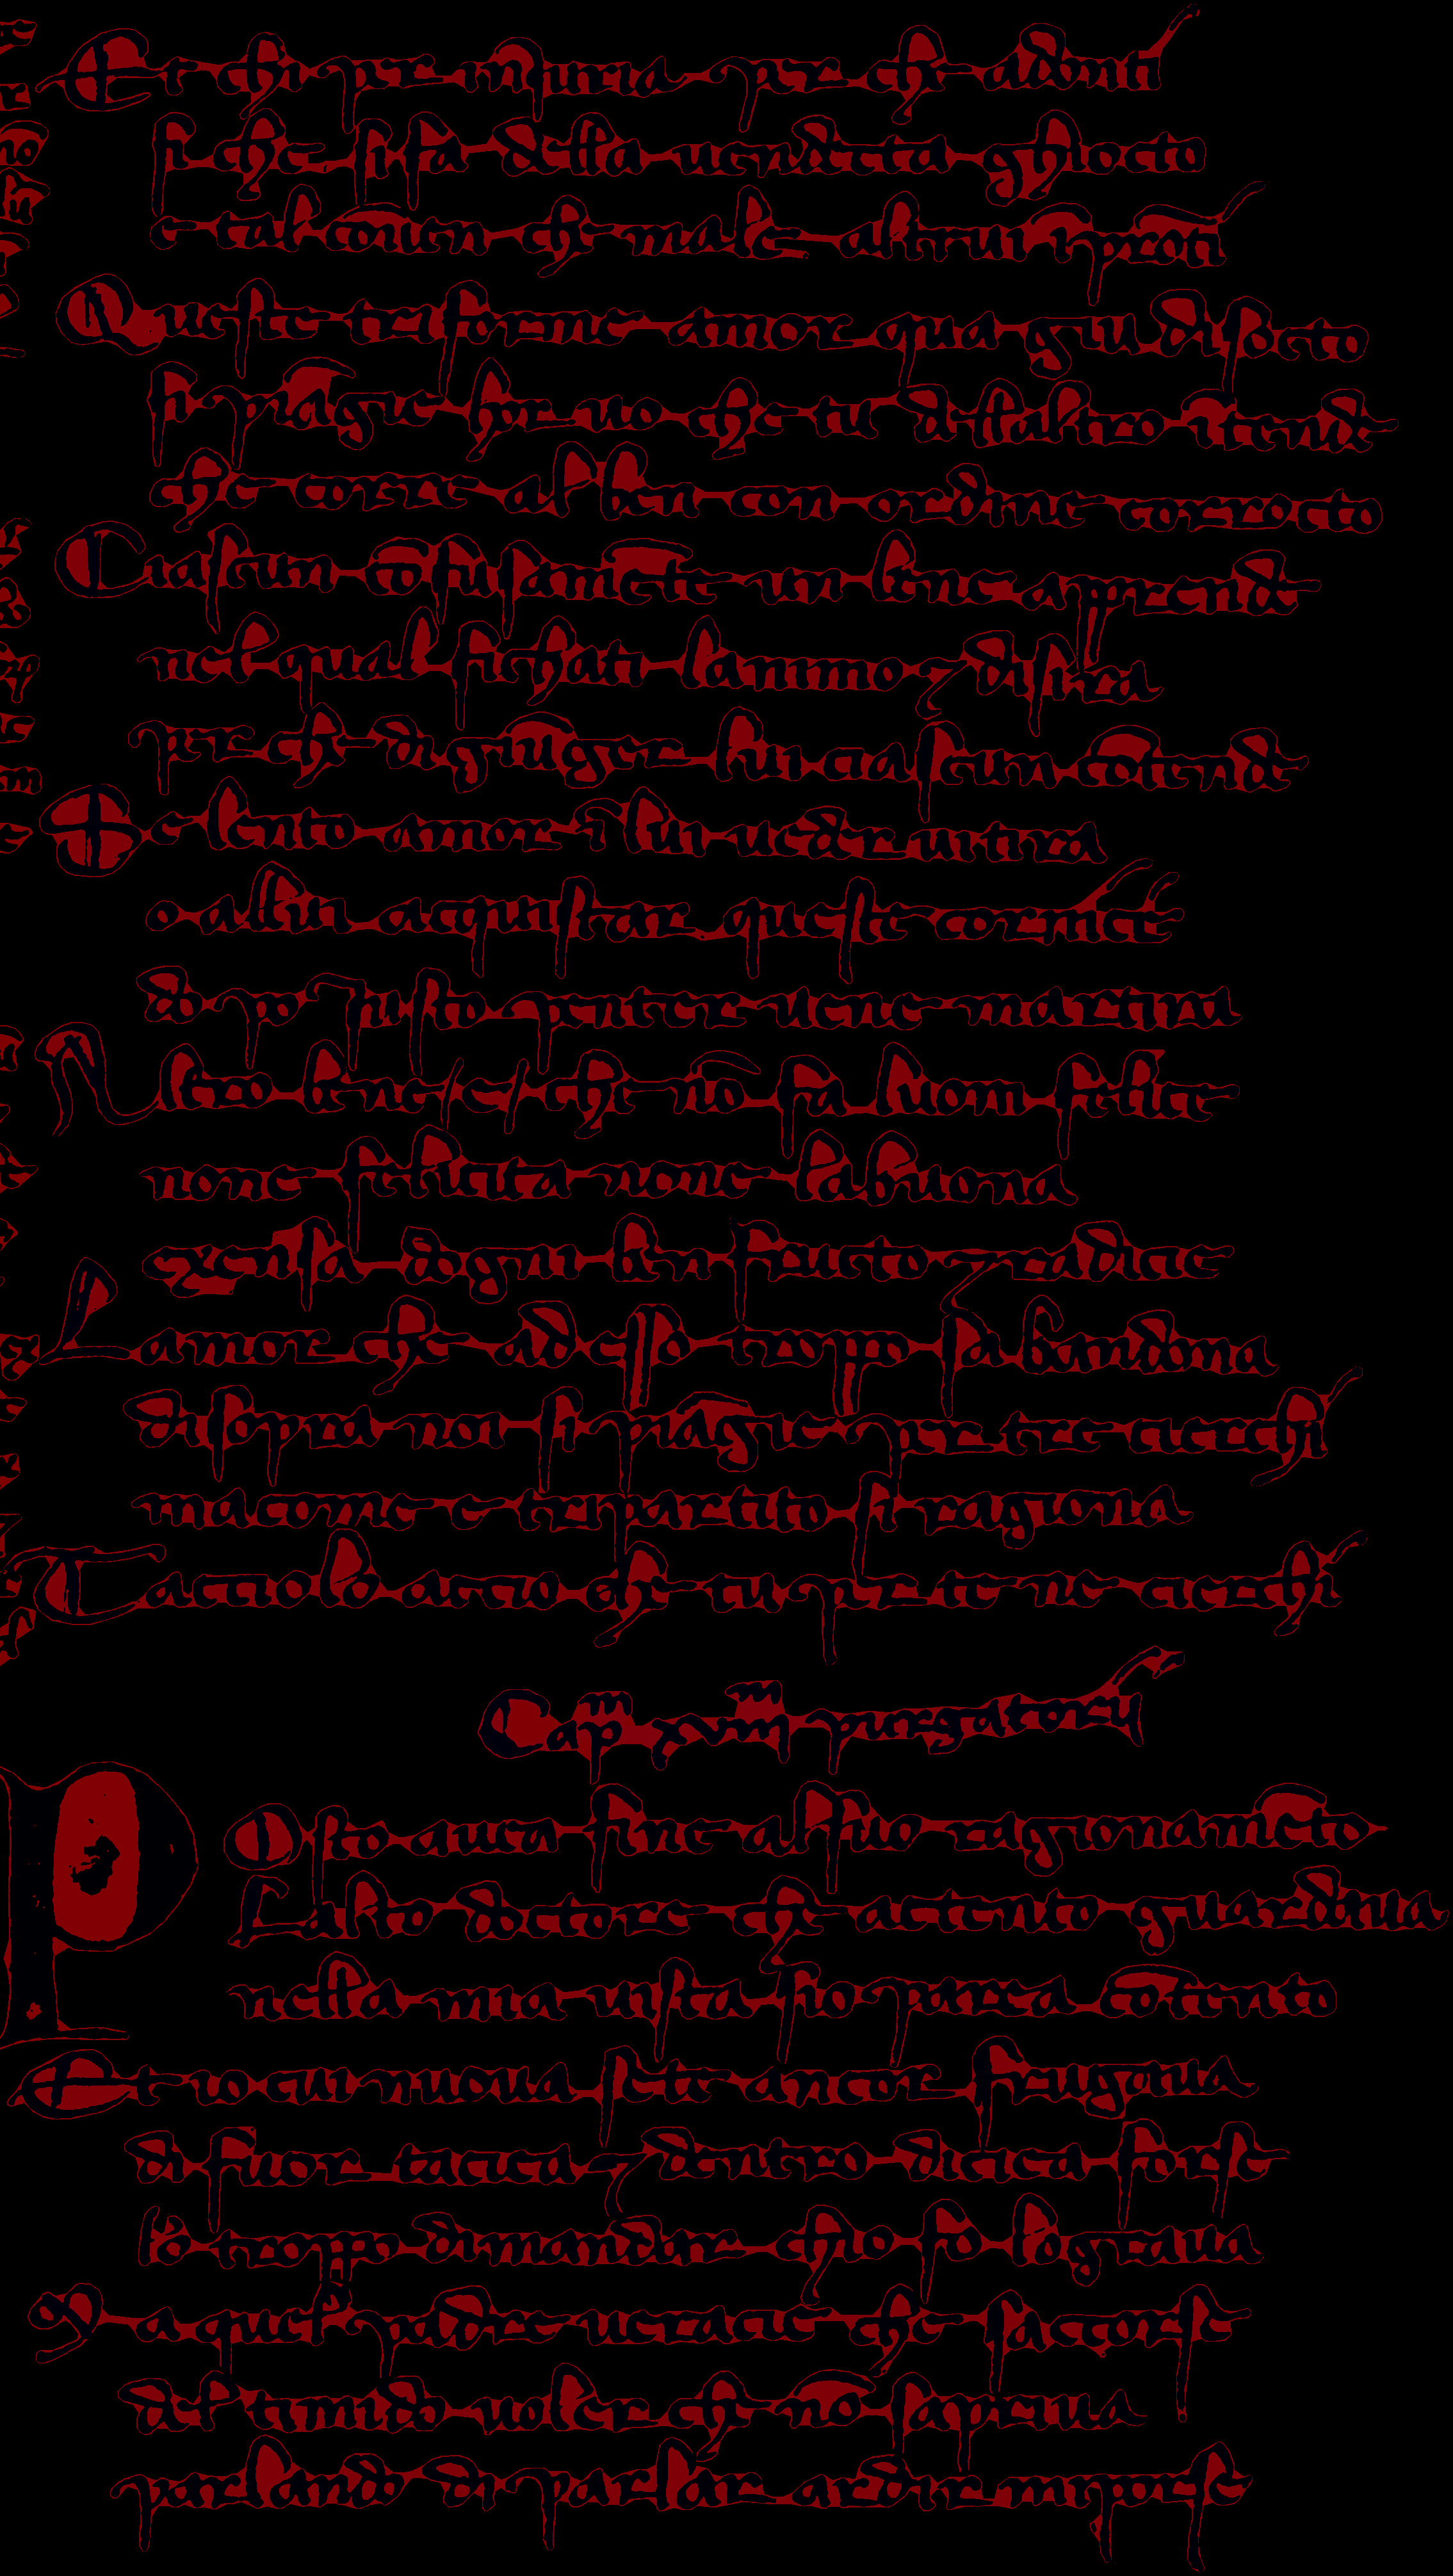 Et chi per iniuria par ch adonti
si che si fa della uendecta ghiocto
e tal cōuen ch male altrui īprōti
Queste triforme amor qua giu disocto
si piāgie hor uo che tu dellaltro ītende
che corre al ben con ordine corrocto
Ciascun cōfusamēte un bene apprende
nel qual si chati lanimo ⁊ disira
per ch di giūger lui ciascun cōtende
Se lento amor ī lui ueder ui tira
o allui acquistar queste cornicē
do po iusto penter uene martira
Altro bene /e/ che nō fa luom felice
none felicita none la buona
exensa dogni ben fructo ⁊ radicie
Lamor che ad esso troppo sabandona
disopra noi si piāgie per tre cierchi
ma come e tripartito si ragiona
Tacciolo accio ch tu per te ne cierchi
Capm xviiim purgatorij
POsto auea fine al suo ragionamēto
Lalto doctore che actento guardaua
nella mia uista sio parea cōtento
Et io cui nuoua sete ancor frugaua
di fuor tacica ⁊ dentro dicica forse
lo troppo dimandar chio fo lograua
Ma quel padre ueracie che saccorse
del timido uoler ch nō sapriua
parlando di parlar ardir mi porse